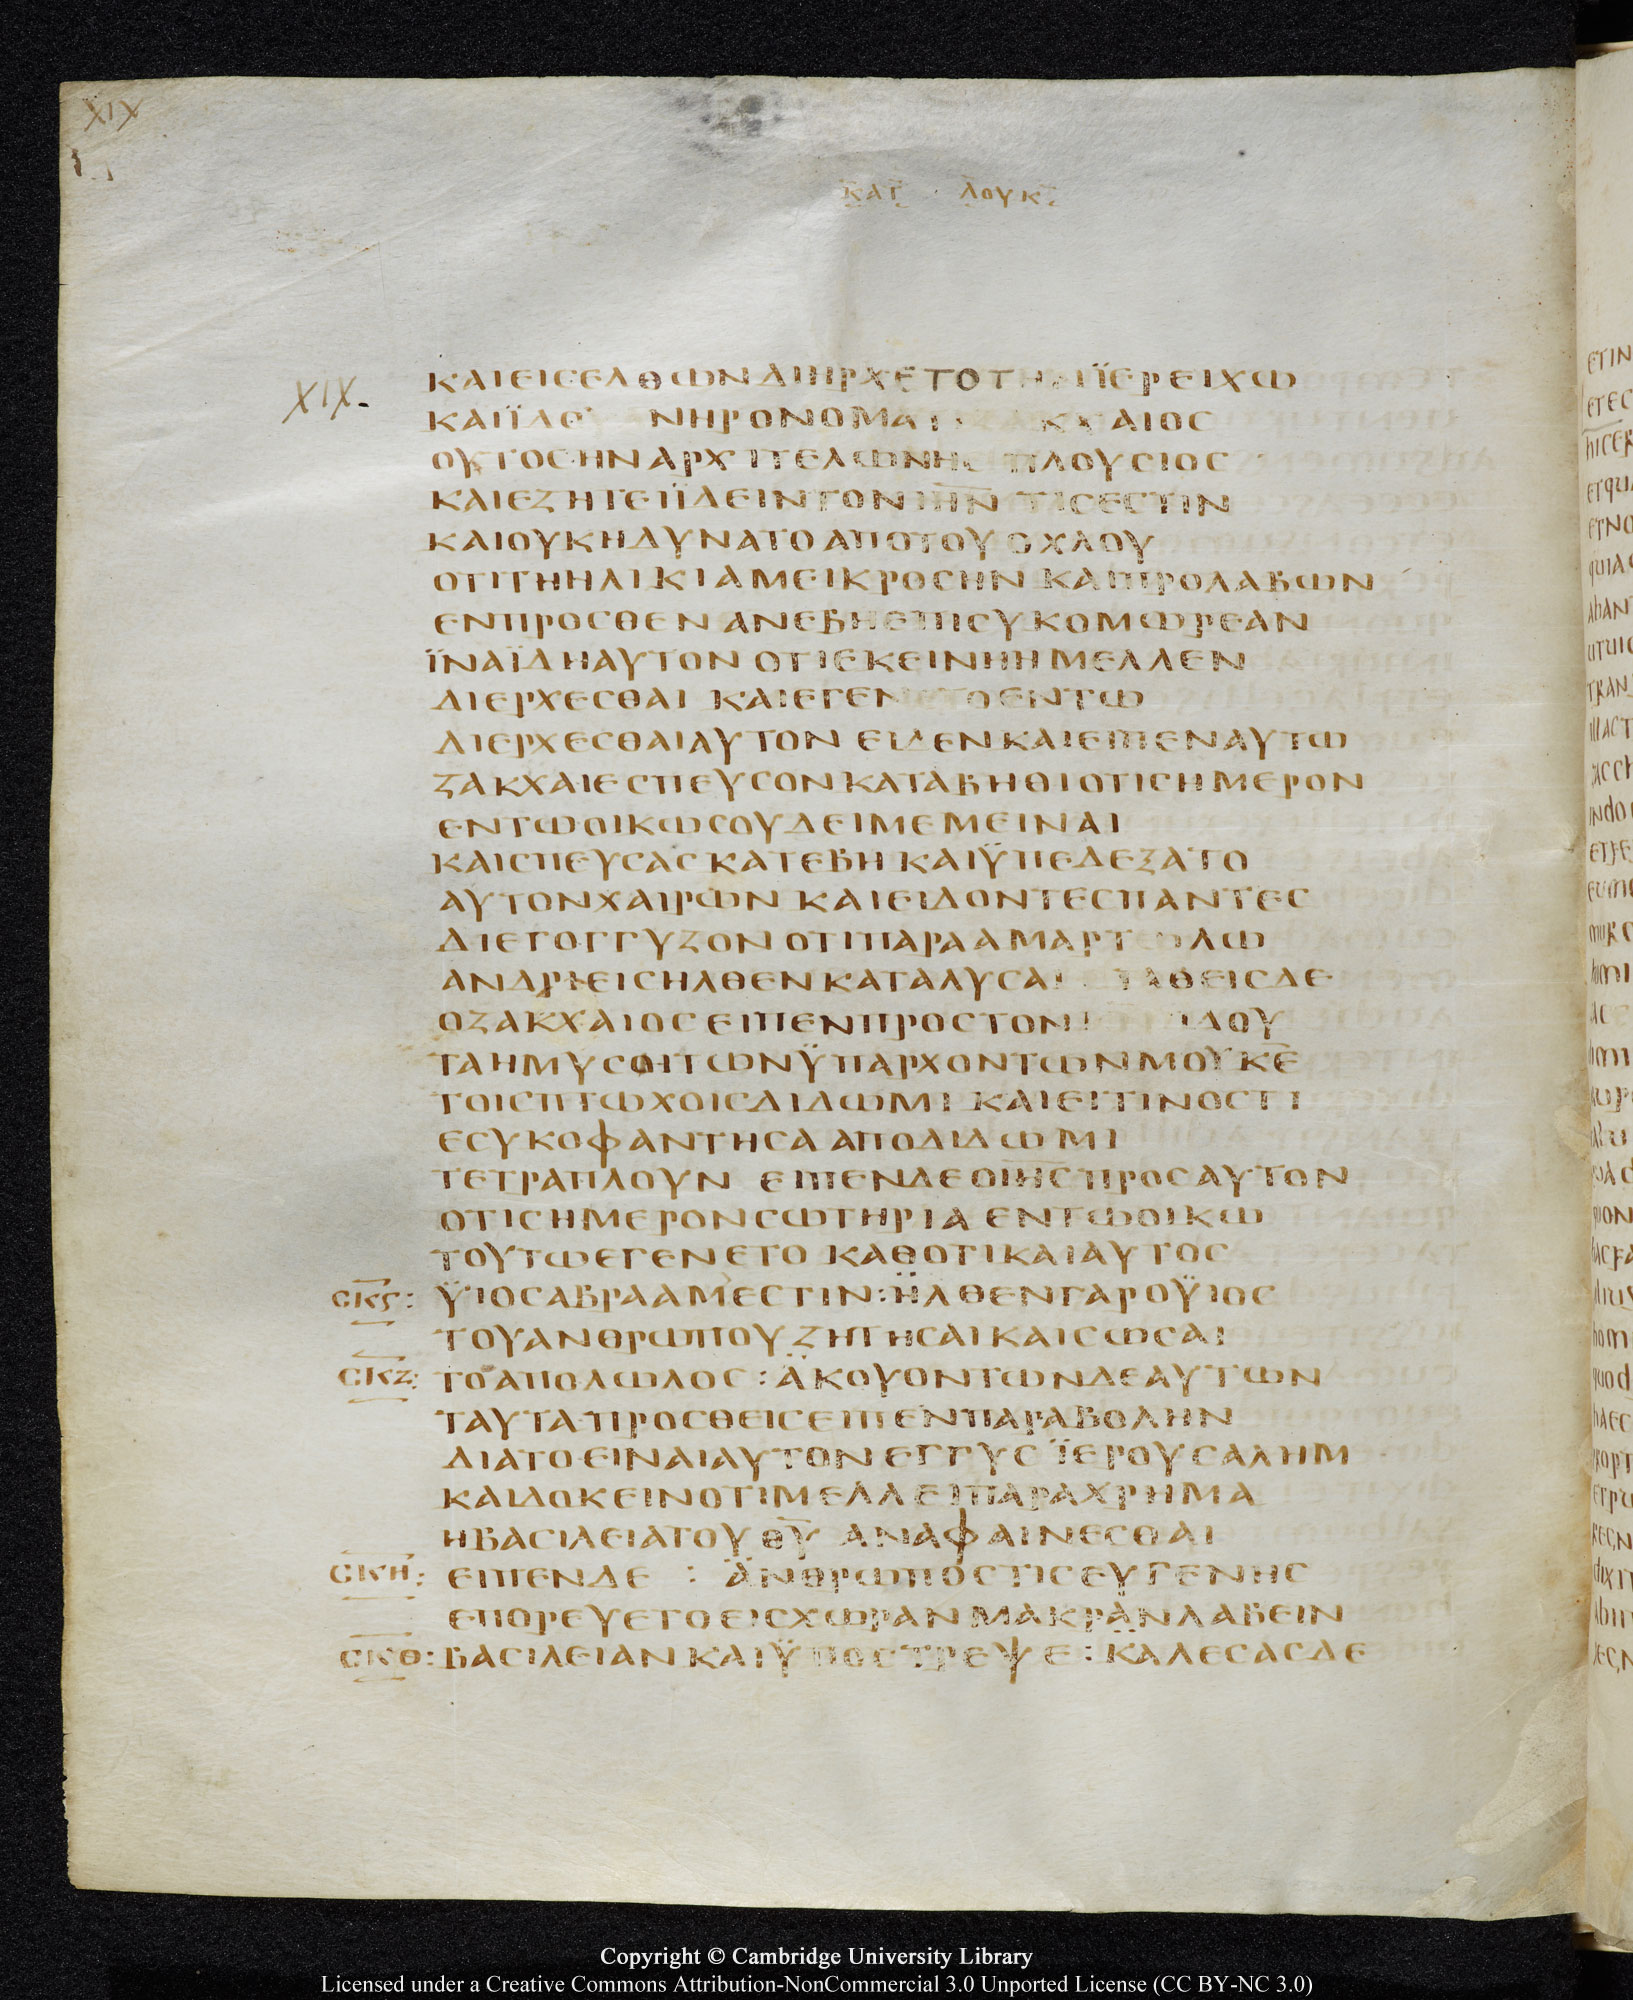 XIX
ΚΑΤ ΛΟΥΚ
XIX.
ΚΑΙ ΕΙΣΕΛΘΩΝ ΔΙΗΡΧΕΤΟ ΤΗΝ ΪΕΡΕΙΧΩ
ΚΑΙ ΪΔΟΥ ΑΝΗΡ ΟΝΟΜΑΤΙ ΖΑΚΧΑΙΟϹ
ΟΥΤΟϹ ΗΝ ΑΡΧΙΤΕΛΩΝΗϹ ΠΛΟΥϹΙΟϹ
ΚΑΙ ΕΖΗΤΕΙ ΪΔΕΙΝ ΤΟΝ ΙΗΝ ΤΙϹ ΕϹΤΙΝ
ΚΑΙ ΟΥΚ ΗΔΥΝΑΤΟ ΑΠΟ ΤΟΥ ΟΧΛΟΥ
ΟΤΙ ΤΗ ΗΛΙΚΙΑ ΜΕΙΚΡΟϹ ΗΝ ΚΑΙ ΠΡΟΛΑΒΩΝ
ΕΝΠΡΟϹΘΕΝ ΑΝΕΒΗ ΕΠΙ ϹΥΚΟΜΩΡΕΑΝ
ΪΝΑ ΪΔΗ ΑΥΤΟΝ ΟΤΙ ΕΚΕΙΝΗ ΗΜΕΛΛΕΝ
ΔΙΕΡΧΕϹΘΑΙ ΚΑΙ ΕΓΕΝΕΤΟ ΕΝ ΤΩ
ΔΙΕΡΧΕϹΘΑΙ ΑΥΤΟΝ ΕΙΔΕΝ ΚΑΙ ΕΙΠΕΝ ΑΥΤΩ
ΖΑΚΧΑΙΕ ϹΠΕΥϹΟΝ ΚΑΤΑΒΗΘΙ ΟΤΙ ϹΗΜΕΡΟΝ
ΕΝ ΤΩ ΟΙΚΩ ϹΟΥ ΔΕΙ ΜΕ ΜΕΙΝΑΙ
ΚΑΙ ϹΠΕΥϹΑϹ ΚΑΤΕΒΗ ΚΑΙ ΫΠΕΔΕΞΑΤΟ
ΑΥΤΟΝ ΧΑΙΡΩΝ ΚΑΙ ΕΙΔΟΝΤΕϹ ΠΑΝΤΕϹ
ΔΙΕΓΟΓΓΥΖΟΝ ΟΤΙ ΠΑΡΑ ΑΜΑΡΤΩΛΩ
ΑΝΔΡΙ ΕΙϹΗΛΘΕΝ ΚΑΤΑΛΥϹΑΙ ϹΤΑΘΕΙϹ ΔΕ
Ο ΖΑΚΧΑΙΟϹ ΕΙΠΕΝ ΠΡΟϹ ΤΟΝ ΙΔΟΥ
ΤΑ ΗΜΥϹΟΙ ΤΩΝ ΫΠΑΡΧΟΝΤΩΝ ΜΟΥ ΚΕ
ΤΟΙϹ ΠΤΩΧΟΙϹ ΔΙΔΩΜΙ ΚΑΙ ΕΙ ΤΙΝΟϹ ΤΙ
ΕϹΥΚΟΦΑΝΤΗϹΑ ΑΠΟΔΙΔΩΜΙ
ΤΕΤΡΑΠΛΟΥΝ ΕΙΠΕΝ ΔΕ Ο ΙΗϹ ΠΡΟϹ ΑΥΤΟΝ
ΟΤΙ ϹΗΜΕΡΟΝ ϹΩΤΗΡΙΑ ΕΝ ΤΩ ΟΙΚΩ
ΤΟΥΤΩ ΕΓΕΝΕΤΟ ΚΑΘΟΤΙ ΚΑΙ ΑΥΤΟϹ
ϹΚϚ: ΫΙΟϹ ΑΒΡΑΑΜ ΕϹΤΙΝ : ΗΛΘΕΝ ΓΑΡ Ο ΫΙΟϹ
ΤΟΥ ΑΝΘΡΩΠΟΥ ΖΗΤΗϹΑΙ ΚΑΙ ϹΩϹΑΙ
ϹΚΖ: ΤΟ ΑΠΟΛΩΛΟϹ : ΑΚΟΥΟΝΤΩΝ ΔΕ ΑΥΤΩΝ
ΤΑΥΤΑ ΠΡΟϹΘΕΙϹ ΕΙΠΕΝ ΠΑΡΑΒΟΛΗΝ
ΔΙΑ ΤΟ ΕΙΝΑΙ ΑΥΤΟΝ ΕΓΓΥϹ ΪΕΡΟΥϹΑΛΗΜ
ΚΑΙ ΔΟΚΕΙΝ ΟΤΙ ΜΕΛΛΕΙ ΠΑΡΑΧΡΗΜΑ
Η ΒΑϹΙΛΕΙΑ ΤΟΥ ΘΥ ΑΝΑΦΑΙΝΕϹΘΑΙ
ϹΚΗ: ΕΙΠΕΝ ΔΕ : ΑΝΘΡΩΠΟϹ ΤΙϹ ΕΥΓΕΝΗϹ
ΕΠΟΡΕΥΕΤΟ ΕΙϹ ΧΩΡΑΝ ΜΑΚΡΑΝ ΛΑΒΕΙΝ
ϹΚΘ: ΒΑϹΙΛΕΙΑΝ ΚΑΙ ΫΠΟϹΤΡΕΨΕ : ΚΑΛΕϹΑϹ ΔΕ
Copyright © Cambridge University Library
Licensed under a Creative Commons Attribution-NonCommercial 3.0 Unported License (CC BY-NC 3.0)